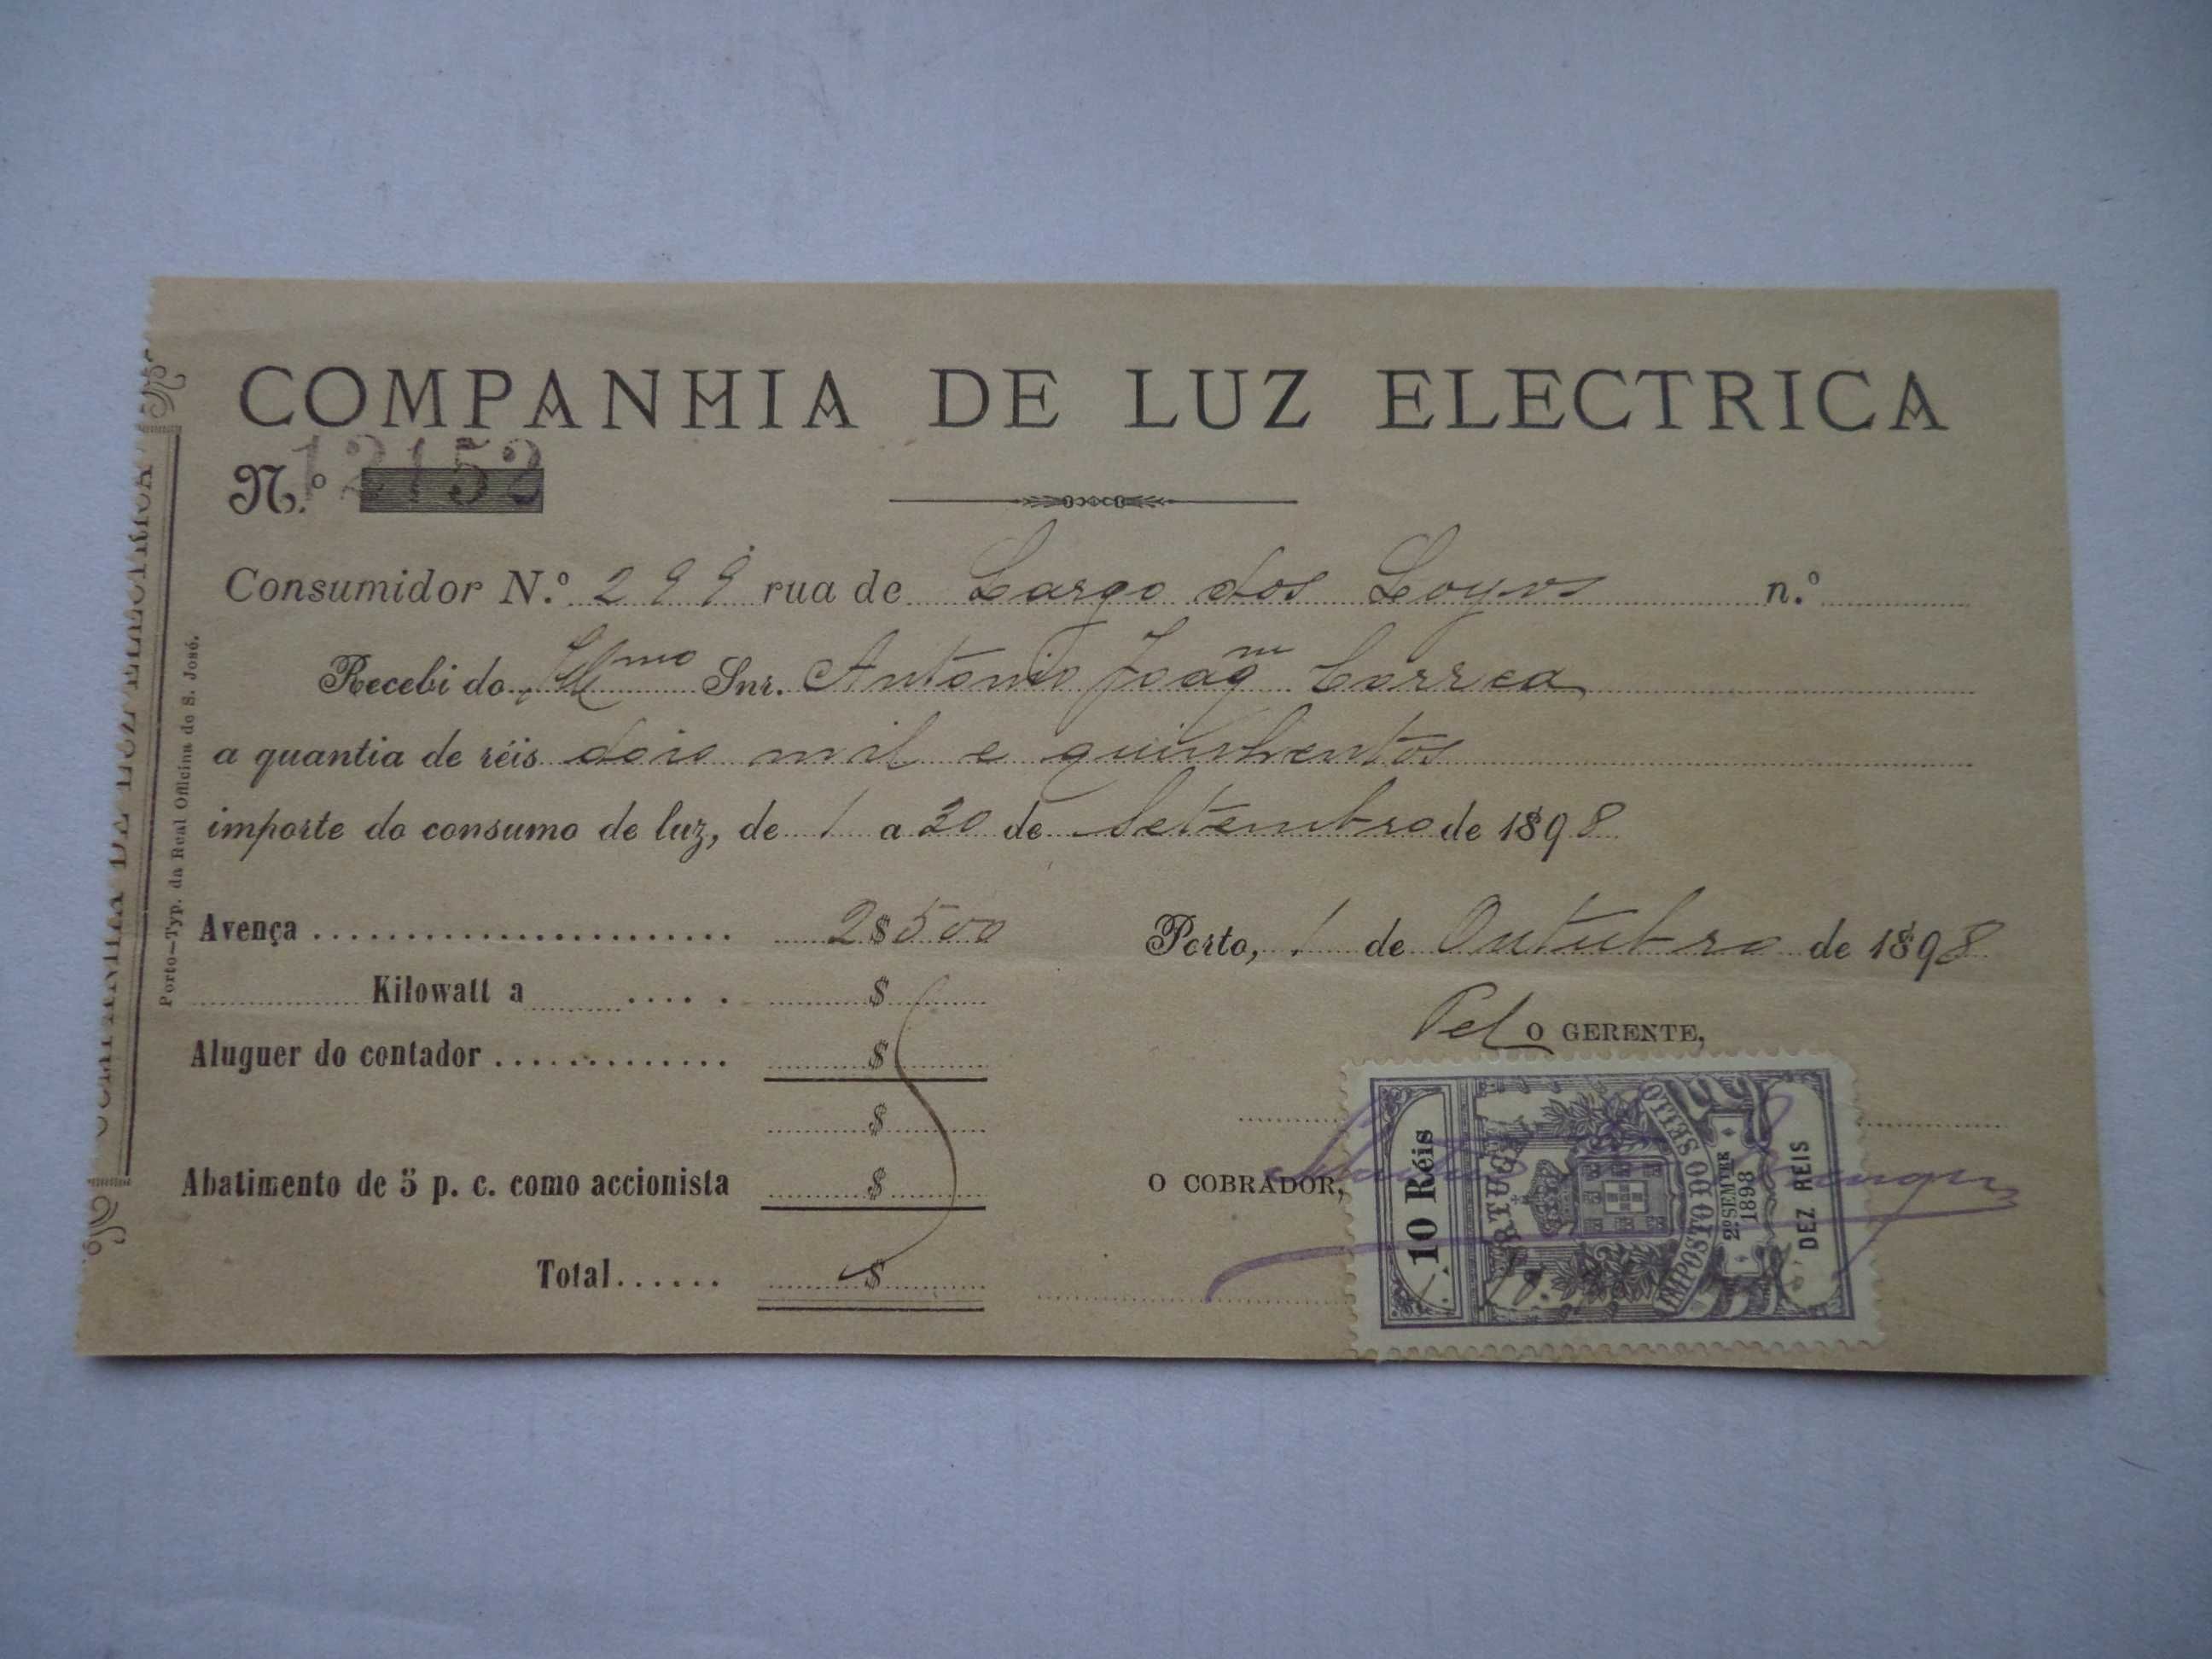 COMPANHIA DE LUZ ELECTRICA
N.º 12152
Consumidor N.º 299 rua de Largo dos Loyos n.º
Recebi do Illmo Snr. Antonio Joaqm Correa
a quantia de réis dois mil e quinhentos
importe do consumo de luz, de 1 a 30 de Setembro de 1898
Avença 2$500
Porto, 1 de Outubro de 1898
Kilowatt a $
Pelo GERENTE,
Aluguer do contador $
$
Abatimento de 5 p. c. como accionista $
O COBRADOR,
Total $
10 Réis
PORTUGAL
IMPOSTO DO SELLO
2º SEMTRE
1898
DEZ RÉIS
Porto—Typ. da Real Officina de S. José.
COMPANHIA DE LUZ ELECTRICA